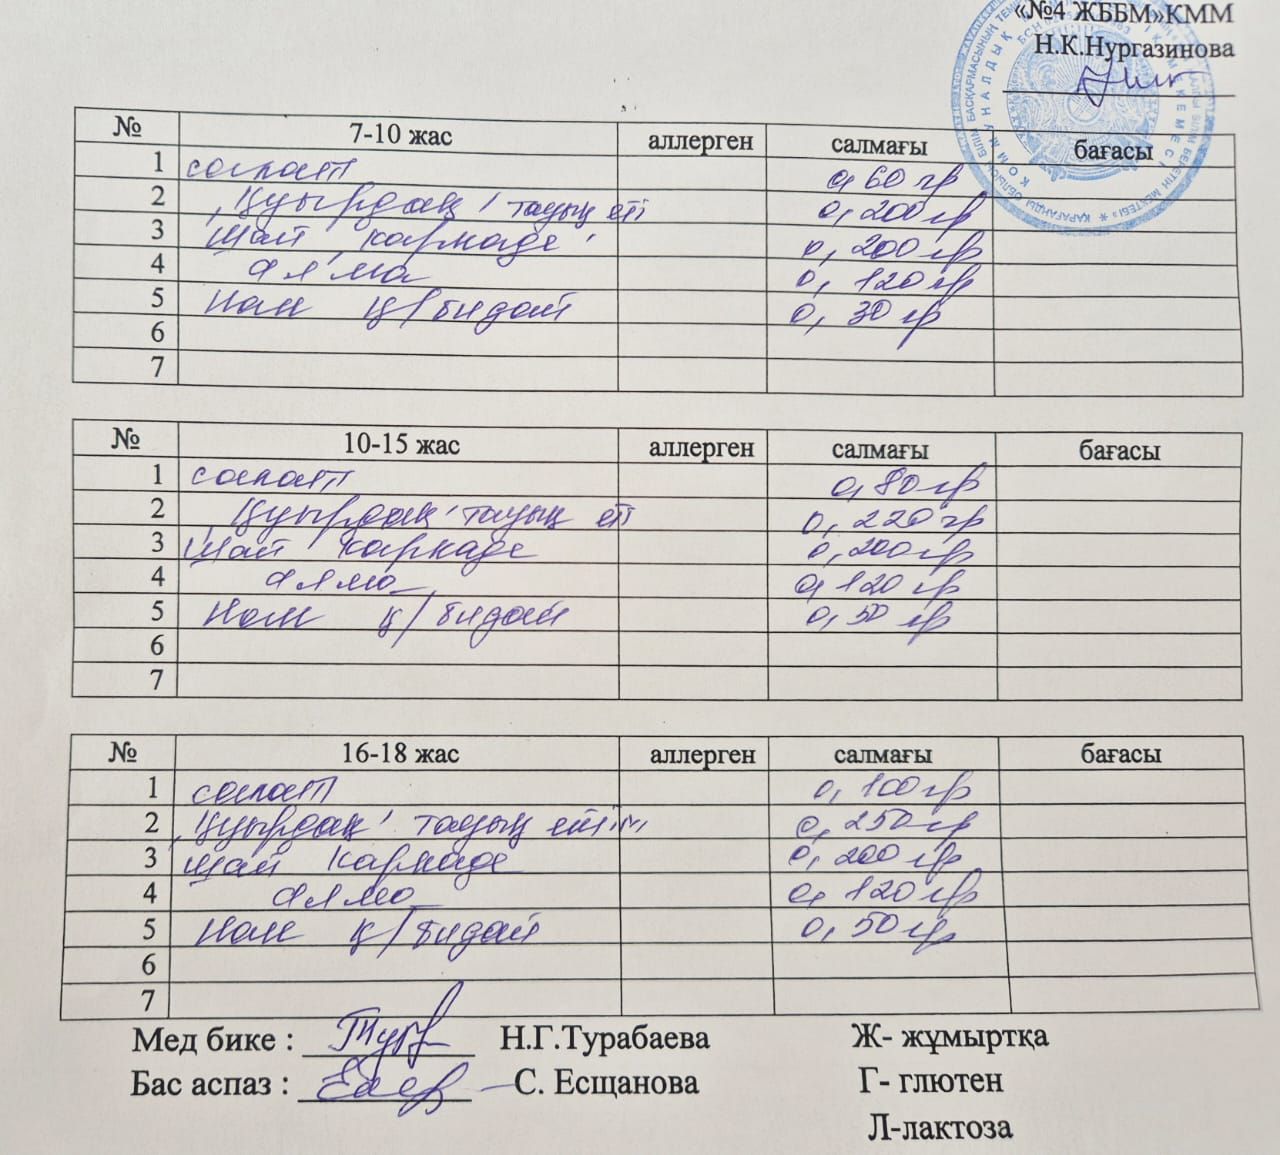 «№4 ЖББМ»КММ
Н.К.Нургазинова
№ 7-10 жас аллерген салмағы бағасы
1 салат 0,60 гр
2 "Қуырдақ" тауық еті 0,200 гр
3 Шай каркаде 0,200 гр
4 алма 0,120 гр
5 Нан қ/бидай 0,30 гр
6
7
№ 10-15 жас аллерген салмағы бағасы
1 салат 0,80 гр
2 "Қуырдақ" тауық еті 0,220 гр
3 Шай каркаде 0,200 гр
4 алма 0,120 гр
5 Нан қ/бидай 0,50 гр
6
7
№ 16-18 жас аллерген салмағы бағасы
1 салат 0,100 гр
2 "Қуырдақ" тауық 0,250 гр
3 Шай каркаде 0,200 гр
4 алма 0,120 гр
5 Нан қ/бидай 0,50 гр
6
7
Мед бике : Н.Г.Турабаева Ж- жұмыртқа
Бас аспаз : С. Есщанова Г- глютен
Л-лактоза